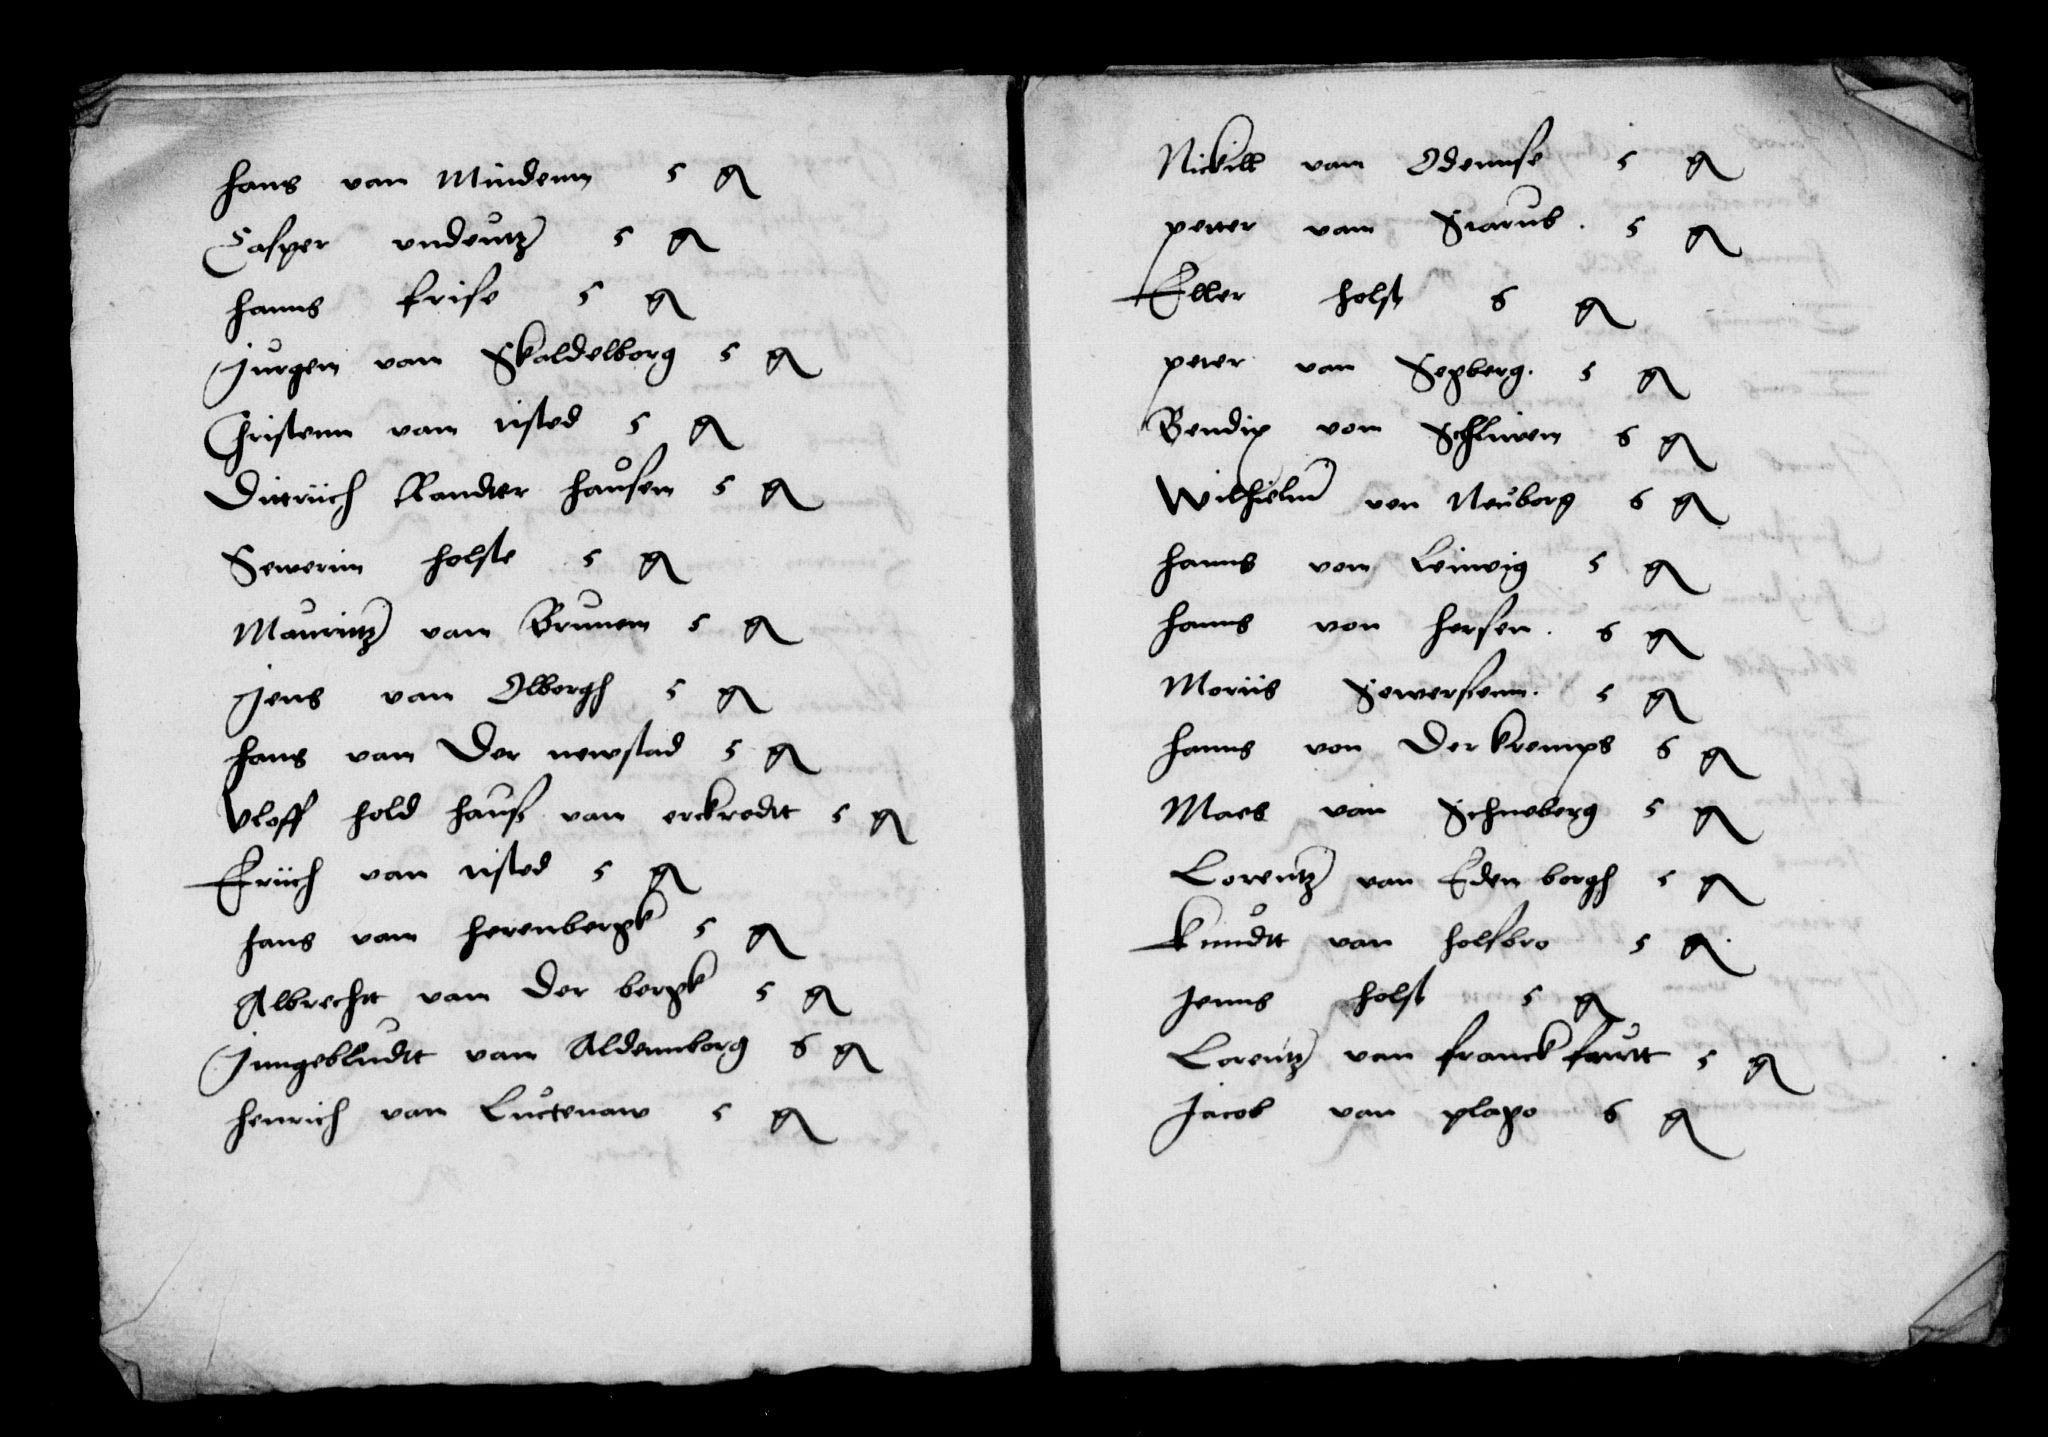 hans van Mindenn 5 g
Casper vndeutz 5 g
hanns frise 5 g
Jurgen vam Skaldelborg 5 g
Christenn vam risted 5 g
Dittrich Randter hausen 5 g
Sewerinn holste 5 g
Mauritz vam Brunem 5 g
Jens vam Olborgh 5 g
hans vam Der newstad 5 g
Vloff hold hauß vam erckrodtt 5 g
Erich van risted 5 g
hans vam herenbergk 5 g
Albrechtt vam Der bergk 5 g
Jungebludtt vam Aldennborg 6 g
henrich van Luctenaw 5 g
Nickill vam Odennse 5 g
petter vam Starub. 5 g
Eller holst 6 g
peter van Segberg. 5 g
Bendix von Schliwen 6 g
Wilhelm von Neuborg 6 g
hanns von Leinvig 5 g
hanns von hersen. 6 g
Moriis Sewersenn. 5 g
hanns von Der kremps 6 g
Maes van Schneberg 5 g
Lorentz van Eden borgh 5 g
knudtt van holsbro 5 g.
Jenns holst 5 g
Lorentz van franck furtt 5 g
Jacob van plago 6 g